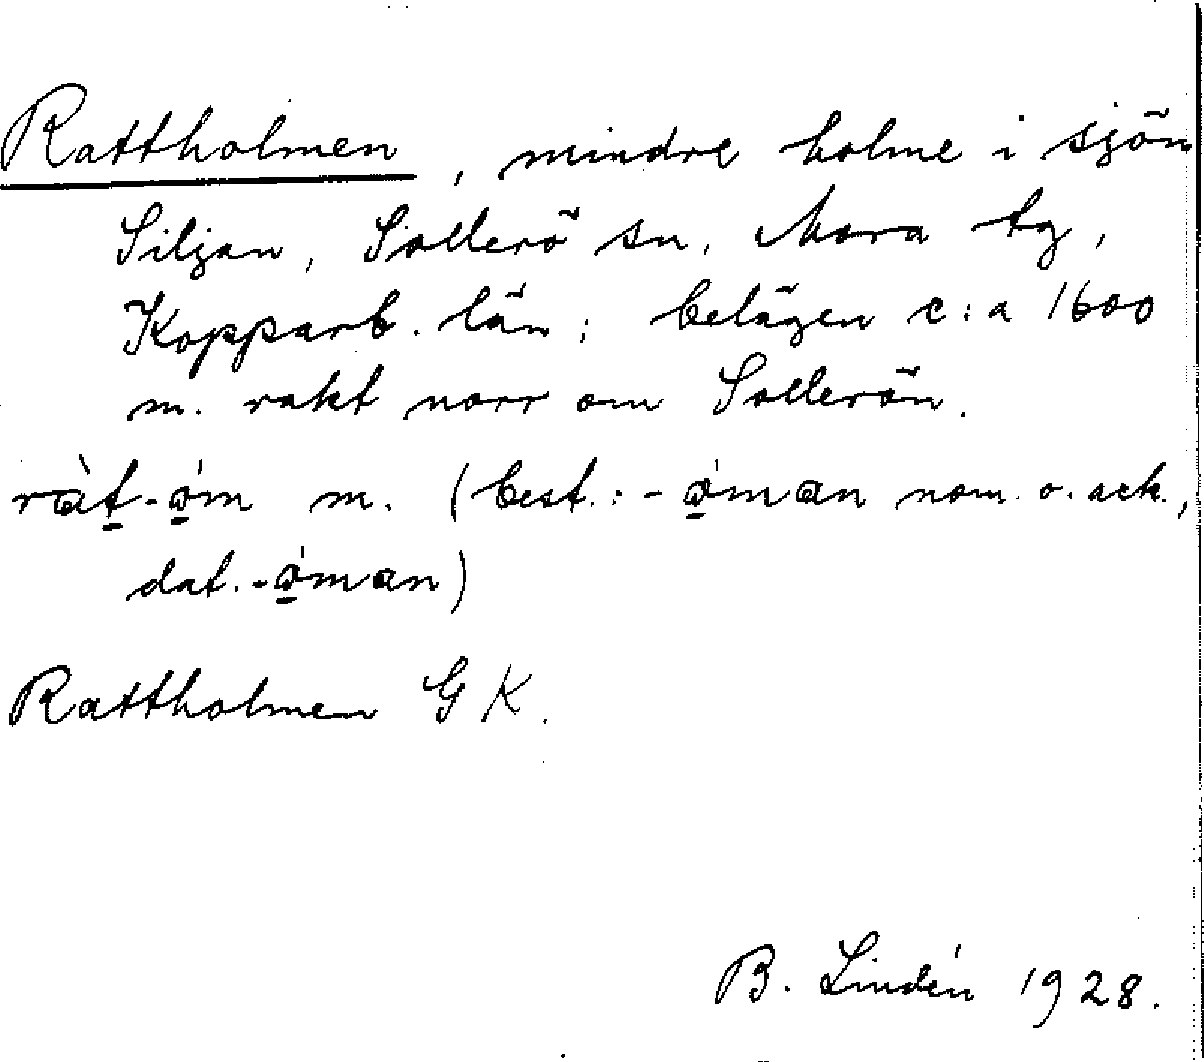 Rattholmen, mindre holme i sjön
Siljan, Sollerö sn, Mora tg,
Kopparb. län; belägen c:a 1600
m. rakt norr om Sollerön.
ràt̠-ǫ́m m. (best.: -ǫ́man nom. o. ack.,
dat. -ǫ́man)
Rattholmen GK.
B. Lindén 1928.